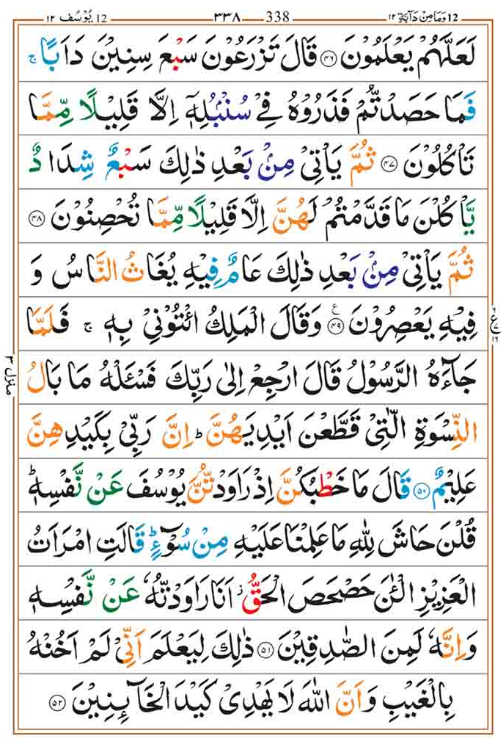 12 وَمَا مِنْ دَآبَّةٍ ١٢ 338 — ٣٣٨ 12 يُوْسُف ١٢
لَعَلَّهُمْ يَعْلَمُوْنَ ۝٤٦ قَالَ تَزْرَعُوْنَ سَبْعَ سِنِيْنَ دَاَبًا ۚ
فَمَا حَصَدْتُّمْ فَذَرُوْهُ فِيْ سُنْۢبُلِهٖٓ اِلَّا قَلِيْلًا مِّمَّا
تَاْكُلُوْنَ ۝٤٧ ثُمَّ يَاْتِيْ مِنْۢ بَعْدِ ذٰلِكَ سَبْعٌ شِدَادٌ
يَّاْكُلْنَ مَا قَدَّمْتُمْ لَهُنَّ اِلَّا قَلِيْلًا مِّمَّا تُحْصِنُوْنَ ۝٤٨
ثُمَّ يَاْتِيْ مِنْۢ بَعْدِ ذٰلِكَ عَامٌ فِيْهِ يُغَاثُ النَّاسُ وَ
فِيْهِ يَعْصِرُوْنَ ۝٤٩ وَقَالَ الْمَلِكُ ائْتُوْنِيْ بِهٖ ۚ فَلَمَّا
جَآءَهُ الرَّسُوْلُ قَالَ ارْجِعْ اِلٰى رَبِّكَ فَسْـَٔلْهُ مَا بَالُ
النِّسْوَةِ الّٰتِيْ قَطَّعْنَ اَيْدِيَهُنَّ ؕ اِنَّ رَبِّيْ بِكَيْدِهِنَّ
عَلِيْمٌ ۝٥٠ قَالَ مَا خَطْبُكُنَّ اِذْ رَاوَدْتُّنَّ يُوْسُفَ عَنْ نَّفْسِهٖ ؕ
قُلْنَ حَاشَ لِلّٰهِ مَا عَلِمْنَا عَلَيْهِ مِنْ سُوْٓءٍ ؕ قَالَتِ امْرَاَتُ
الْعَزِيْزِ الْـٰٔنَ حَصْحَصَ الْحَقُّ ؗ اَنَا رَاوَدْتُّهٗ عَنْ نَّفْسِهٖ
وَاِنَّهٗ لَمِنَ الصّٰدِقِيْنَ ۝٥١ ذٰلِكَ لِيَعْلَمَ اَنِّيْ لَمْ اَخُنْهُ
بِالْغَيْبِ وَاَنَّ اللّٰهَ لَا يَهْدِيْ كَيْدَ الْخَآئِنِيْنَ ۝٥٢
منزل ٣